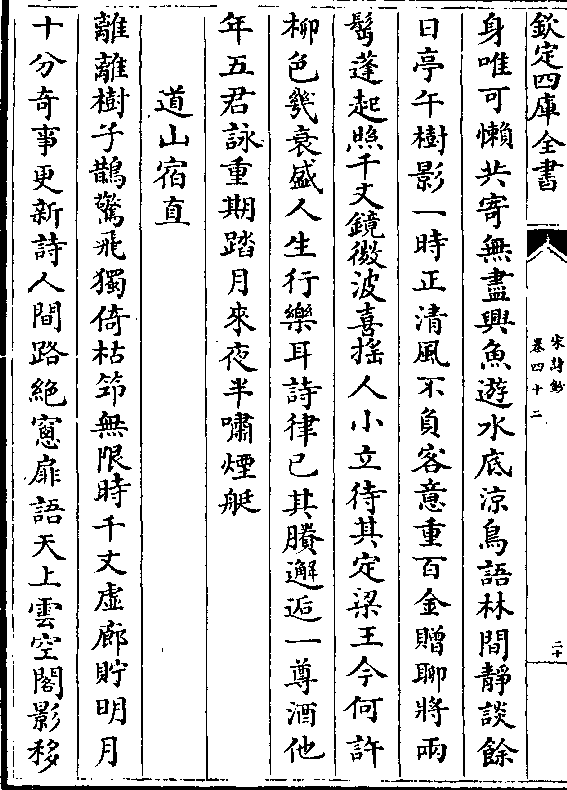 欽定四庫全書
宋詩鈔
卷四十二
二十
身唯可懶共寄無盡興魚遊水底涼鳥語林間靜談餘
日亭午樹影一時正清風不負客意重百金贈聊將兩
鬢蓬起照千丈鏡微波喜搖人小立待其定梁王今何許
柳色幾衰盛人生行樂耳詩律已其賸邂逅一尊酒他
年五君詠重期踏月來夜半嘯煙艇
道山宿直
離離樹子鵲驚飛獨倚枯笻無限時千丈虛廊貯明月
十分奇事更新詩人間路絶窻扉語天上雲空閣影移